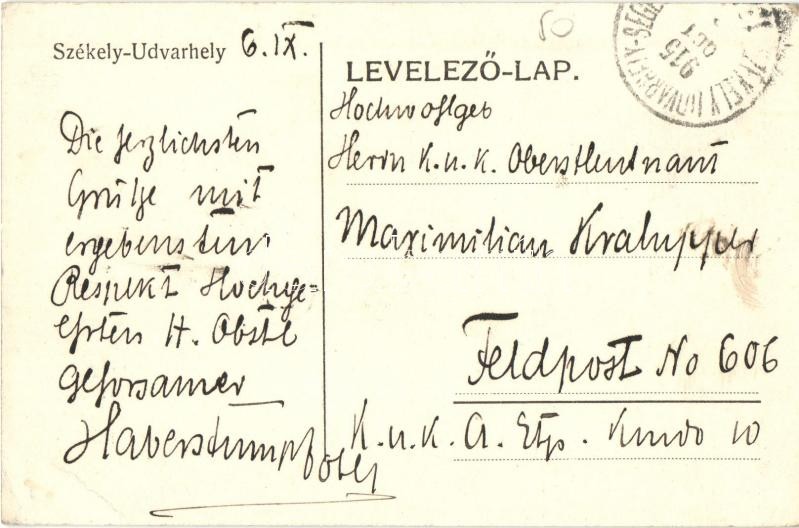 50
Székely-Udvarhely 6. IX.
Die herzlichsten
Grüße mit
ergebensten
Respekt Hochge=
ehrten H. Obstl
gehorsamer
Haberstumpf
LEVELEZŐ-LAP.
915
OCT
Hochwohlgeb
Herrn K.u.K. Oberstleutnant
Maximilian Kralupper
Feldpost No 606
K.u.K. A. Etp. Kmdo 10